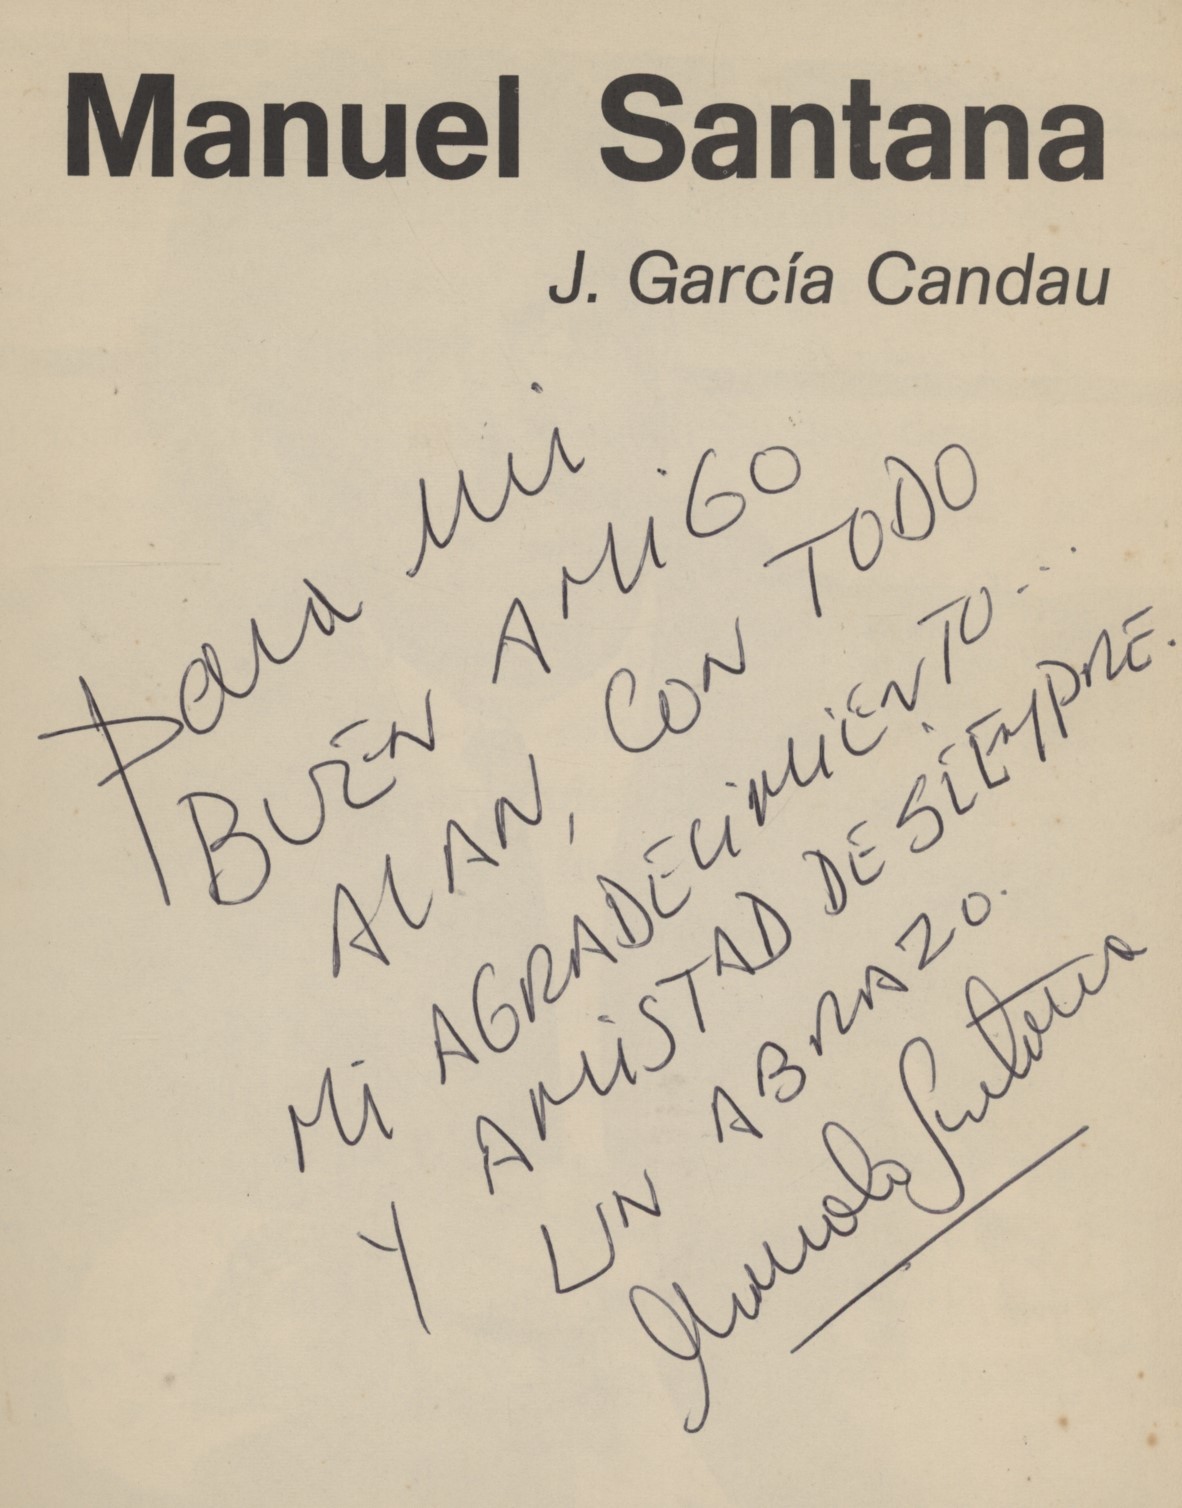 Manuel Santana
J. García Candau
Para mi
BUEN AMIGO
ALAN, CON TODO
MI AGRADECIMIENTO...
Y AMISTAD DE SIEMPRE.
UN ABRAZO.
Manolo Santana